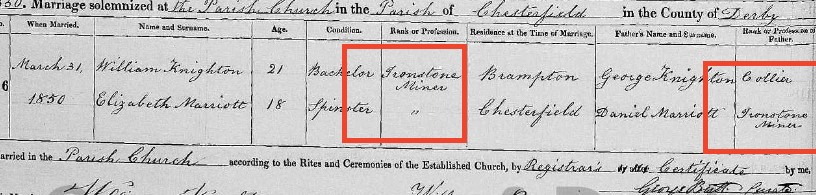 50. Marriage solemnized at the Parish Church in the Parish of Chesterfield in the County of Derby
When Married. Name and Surname. Age. Condition. Rank or Profession. Residence at the Time of Marriage. Father's Name and Surname. Rank or Profession of Father.
6 March 31, William Knighton 21 Bachelor Ironstone Miner Brampton George Knighton Collier
1850 Elizabeth Marriott 18 Spinster " Chesterfield Daniel Marriott Ironstone Miner
arried in the Parish Church according to the Rites and Ceremonies of the Established Church, by Registrar's Certificate by me,
George Curate